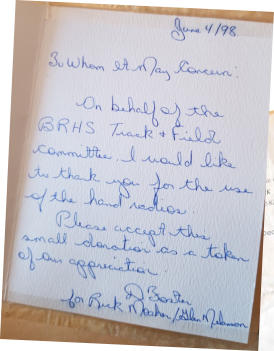 June 4/98
To Whom It May Concern:
On behalf of the
BRHS Track & Field
committee. I would like
to thank you for the use
of the hand radios.
Please accept this
small donation as a token
of our appreciation.
D Boster
for Rick Mosher/Glen